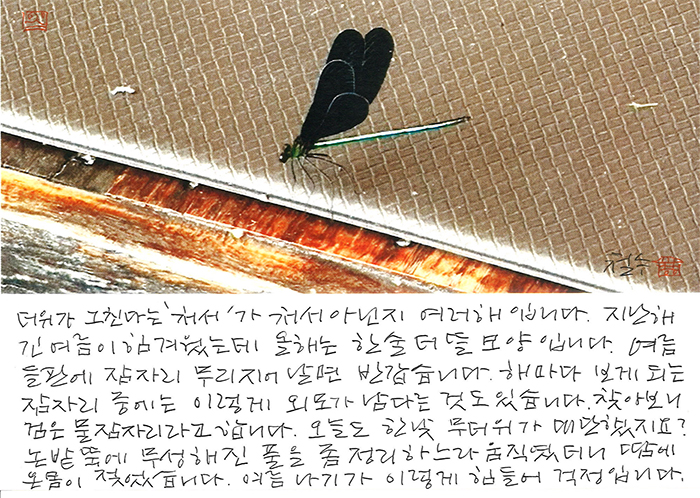 철수
더위가 그친다는 '처서'가 처서 아닌지 여러해 입니다. 지난해
긴 여름이 힘겨웠는데 올해는 한술 더 뜰 모양입니다. 여름
들판에 잠자리 무리지어 날면 반갑습니다. 해마다 보게 되는
잠자리 중에는 이렇게 외모가 남다른 것도 있습니다. 찾아보니
검은 물잠자리라고 합니다. 오늘도 한낮 무더위가 대단했지요?
논밭 뚝에 무성해진 풀을 좀 정리하느라 움직였더니 땀에
온몸이 젖었습니다. 여름 나기가 이렇게 힘들어 걱정입니다.